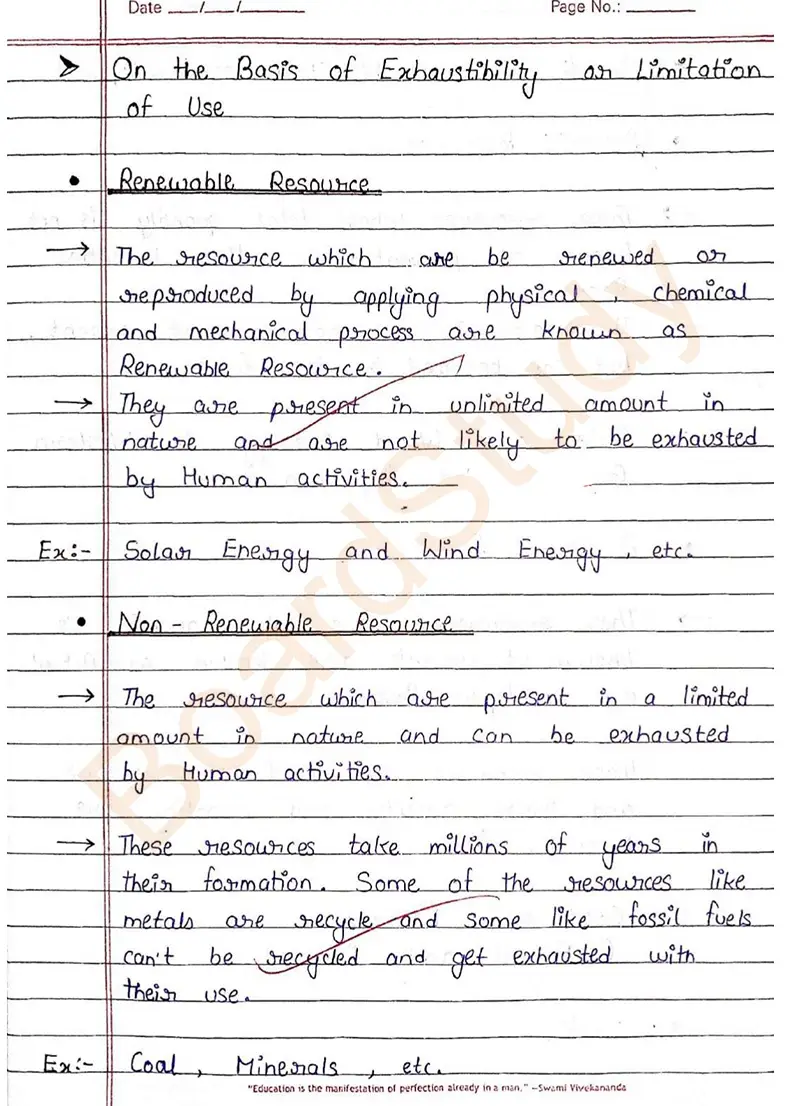 Date ___/___/______ Page No.: ________
➢ On the Basis of Exhaustibility or Limitation
of Use
• Renewable Resource
→ The resource which are be renewed or
reproduced by applying physical , chemical
and mechanical process are known as
Renewable Resource.
→ They are present in unlimited amount in
nature and are not likely to be exhausted
by Human activities.
Ex:- Solar Energy and Wind Energy , etc.
• Non - Renewable Resource
→ The resource which are present in a limited
amount in nature and can be exhausted
by Human activities.
→ These resources take millions of years in
their formation. Some of the resources like
metals are recycle and some like fossil fuels
can't be recycled and get exhausted with
their use.
Ex:- Coal , Minerals , etc.
"Education is the manifestation of perfection already in a man." –Swami Vivekananda
BoardStudy